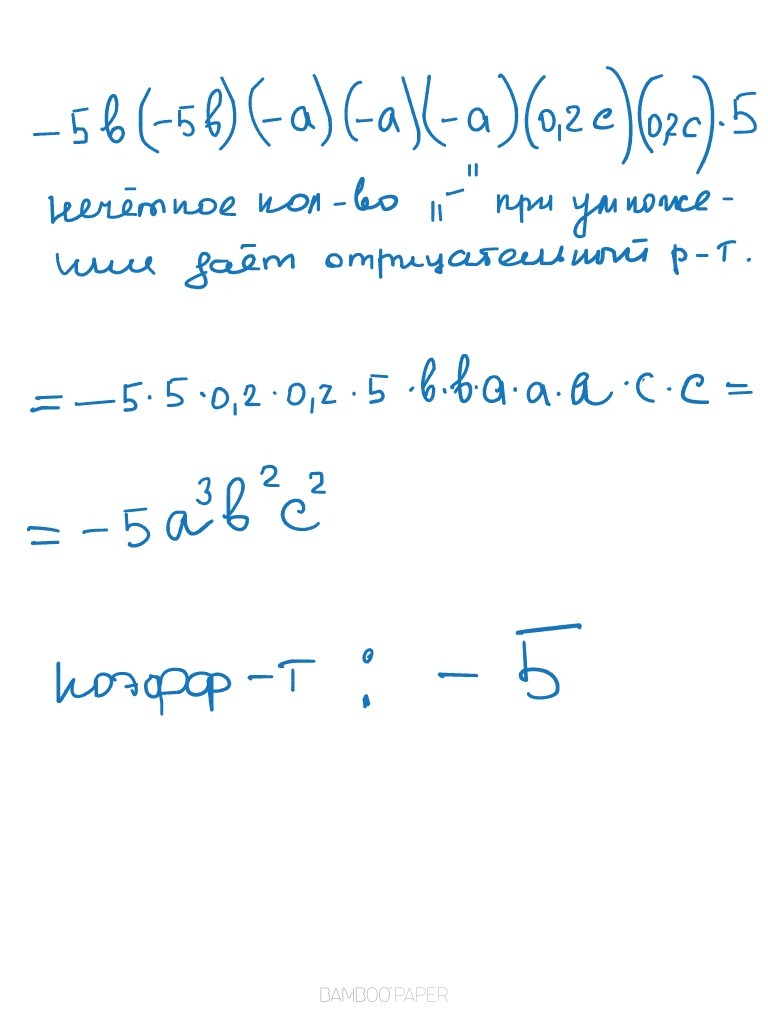 -5в(-5в)(-a)(-a)(-a)(0,2c)(0,2c)·5
нечётное кол-во „-" при умноже-
нии даёт отрицательный р-т.
=-5·5·0,2·0,2·5·в·в·a·a·a·c·c=
=-5a³в²c²
коэфф-т : -5
BAMBOO PAPER